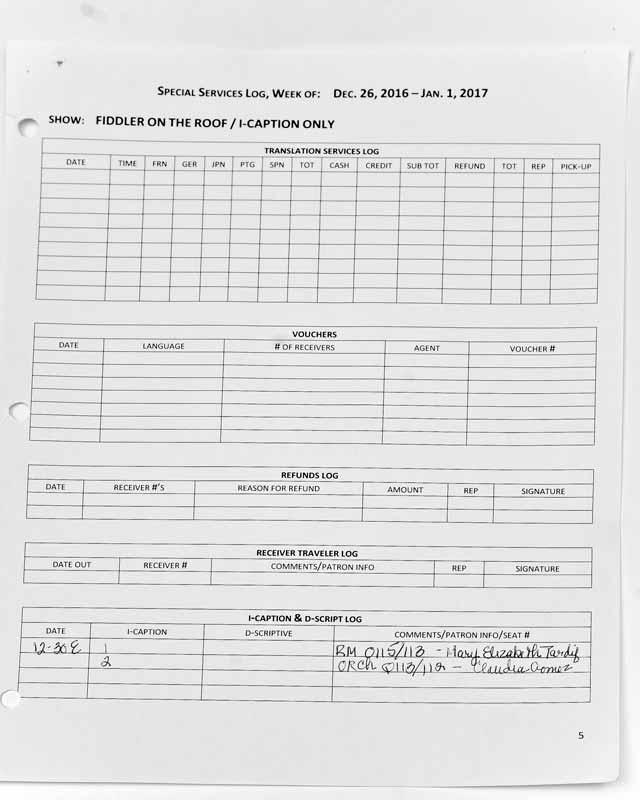 SPECIAL SERVICES LOG, WEEK OF: DEC. 26, 2016 – JAN. 1, 2017
SHOW: FIDDLER ON THE ROOF / I-CAPTION ONLY
TRANSLATION SERVICES LOG
DATE TIME FRN GER JPN PTG SPN TOT CASH CREDIT SUB TOT REFUND TOT REP PICK-UP
VOUCHERS
DATE LANGUAGE # OF RECEIVERS AGENT VOUCHER #
REFUNDS LOG
DATE RECEIVER #'S REASON FOR REFUND AMOUNT REP SIGNATURE
RECEIVER TRAVELER LOG
DATE OUT RECEIVER # COMMENTS/PATRON INFO REP SIGNATURE
I-CAPTION & D-SCRIPT LOG
DATE I-CAPTION D-SCRIPTIVE COMMENTS/PATRON INFO/SEAT #
12-30 E 1 RM O115/113 - Mary Elizabeth Tardif
2 ORCh O113/112 - Claudia Gomez
5